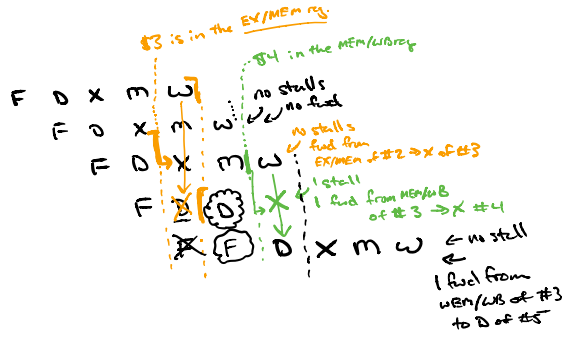 $3 is in the EX/MEM reg.
$4 in the MEM/WB reg
F D X M W
no stalls
no fwd
F D X M W
no stalls
fwd from
EX/MEM of #2 → X of #3
F D X M W
1 stall
1 fwd from MEM/WB
of #3 → X #4
F D D X
F F D X M W
← no stall
←
1 fwd from
MEM/WB of #3
to D of #5